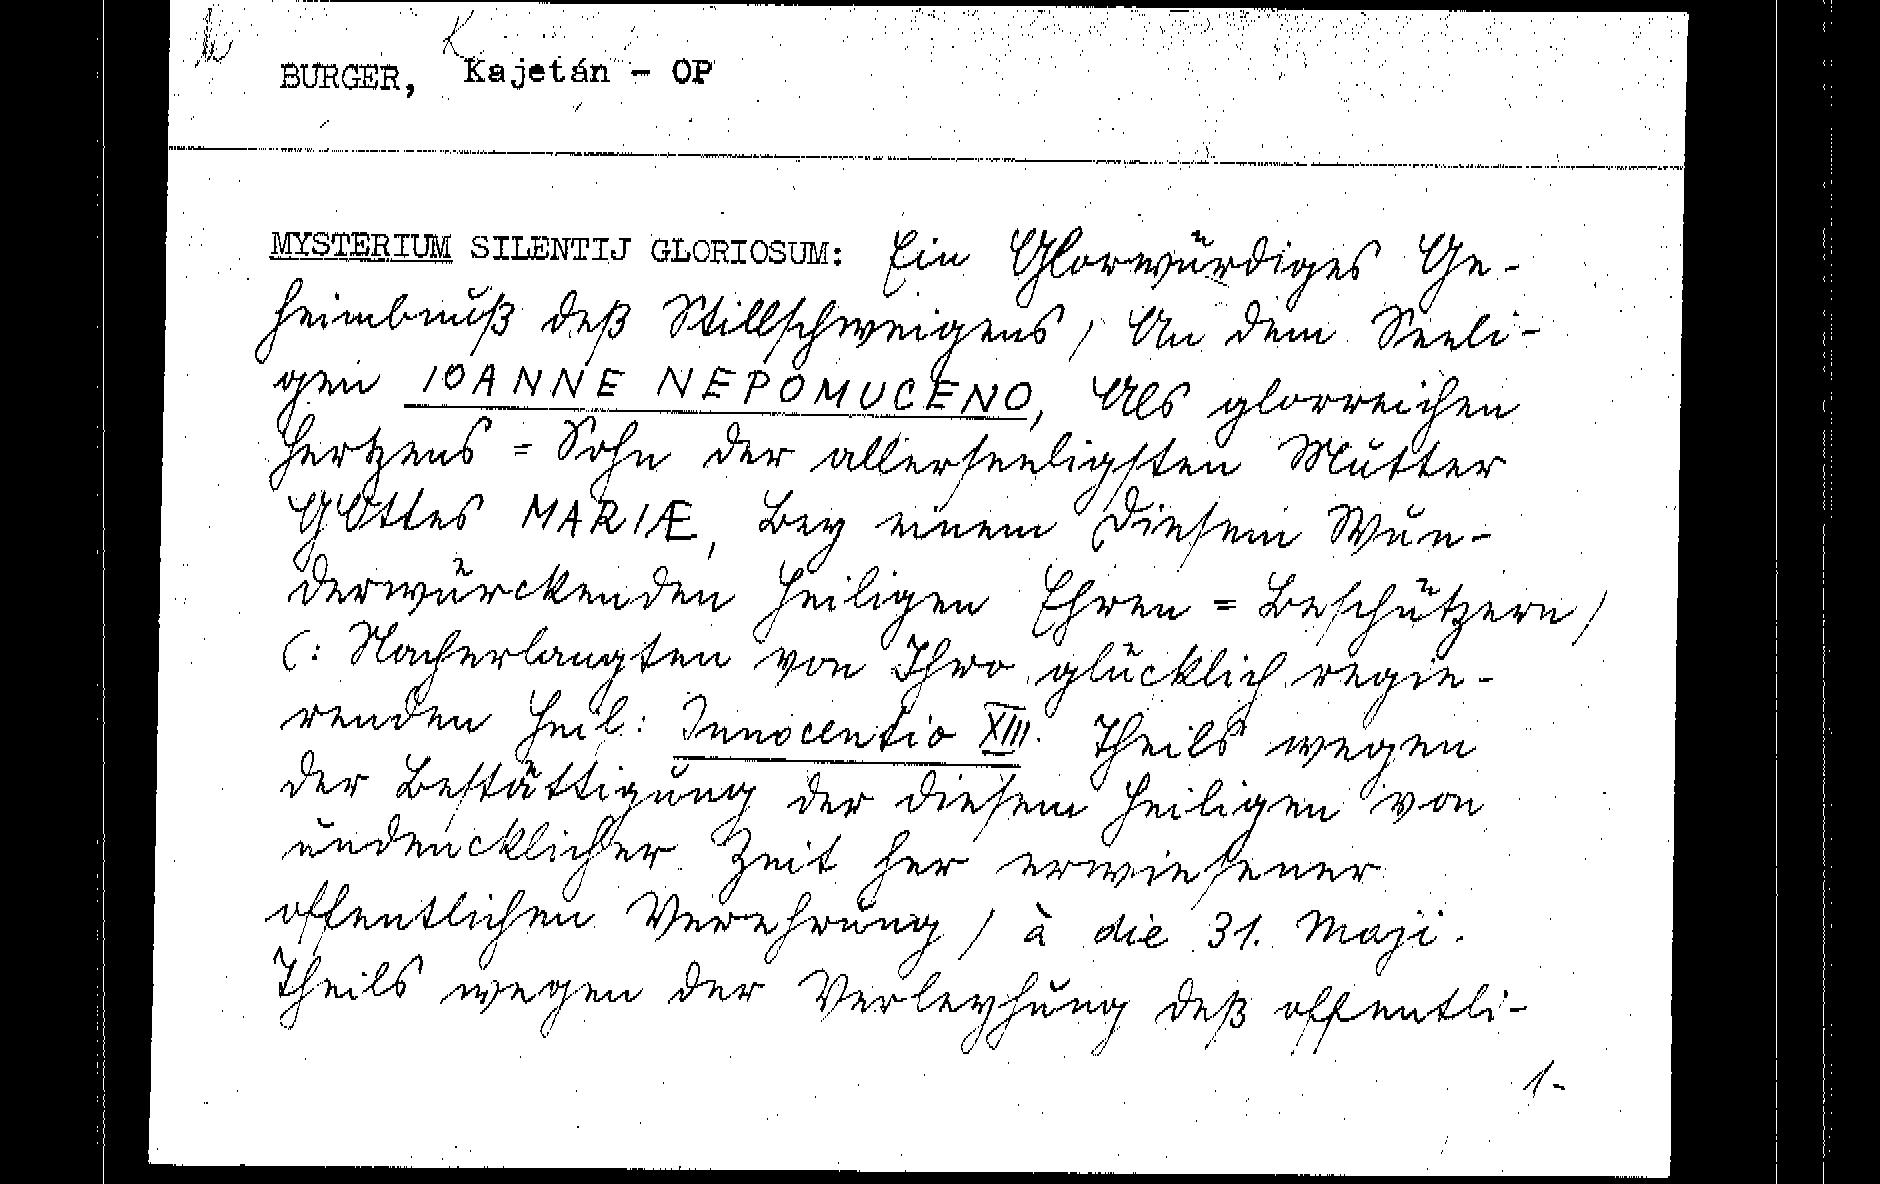 K
BURGER, Kajetán - OP
MYSTERIUM SILENTIJ GLORIOSUM: Ein Glorwürdiges Ge-
heimbnuß deß Stillschweigens / An dem Seeli-
gen IOANNE NEPOMUCENO, Als glorreichen
Hertzens = Sohn der allerseeligsten Mutter
GOttes MARIÆ, Bey einem diesem Wun-
derwürckenden Heiligen Ehren = Beschützern /
(: Nacherlangten von Ihro glücklich regie-
renden Heil: Innocentio XIII. Theils wegen
der Bestättigung der diesem Heiligen von
undencklicher Zeit her erwiesener
offentlichen Verehrung / à die 31. Maji.
Theils wegen der Verleyhung deß offentli-
1-